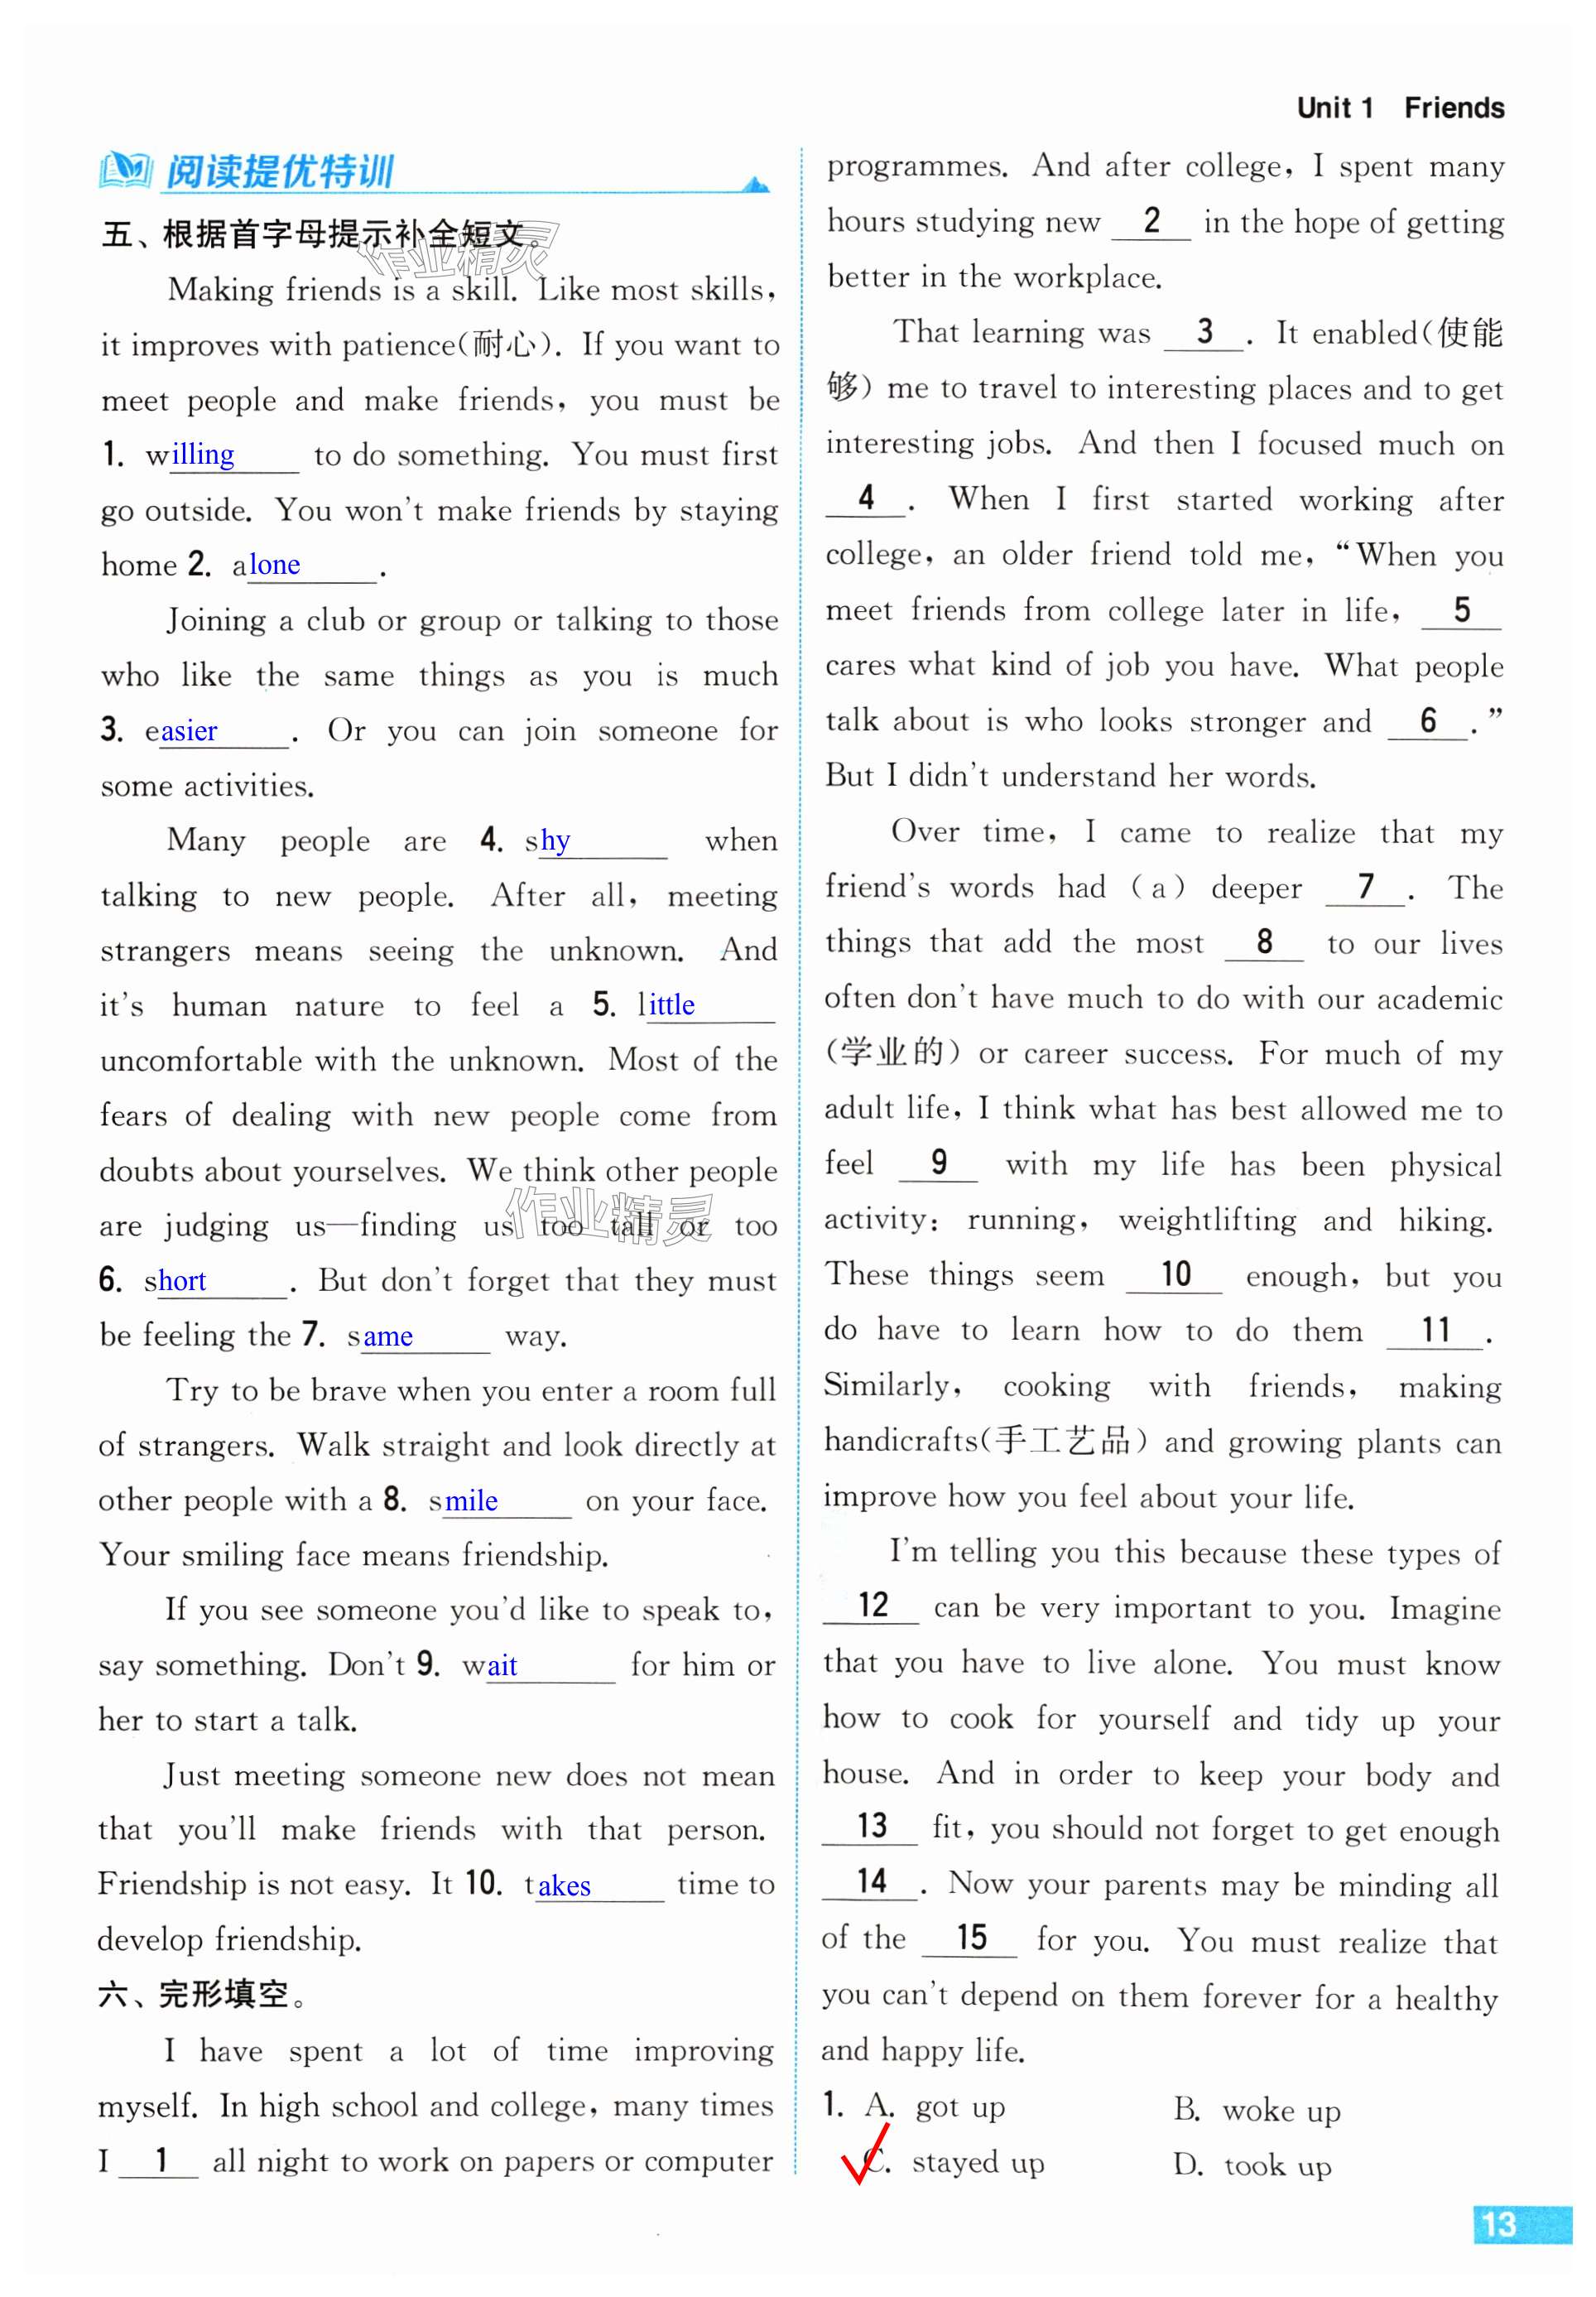 Unit 1 Friends
阅读提优特训
五、根据首字母提示补全短文。
作业精灵
Making friends is a skill. Like most skills,
it improves with patience(耐心). If you want to
meet people and make friends, you must be
1. willing to do something. You must first
go outside. You won't make friends by staying
home 2. alone.
Joining a club or group or talking to those
who like the same things as you is much
3. easier. Or you can join someone for
some activities.
Many people are 4. shy when
talking to new people. After all, meeting
strangers means seeing the unknown. And
it's human nature to feel a 5. little
uncomfortable with the unknown. Most of the
fears of dealing with new people come from
doubts about yourselves. We think other people
作业精灵
are judging us—finding us too tall or too
6. short. But don't forget that they must
be feeling the 7. same way.
Try to be brave when you enter a room full
of strangers. Walk straight and look directly at
other people with a 8. smile on your face.
Your smiling face means friendship.
If you see someone you'd like to speak to,
say something. Don't 9. wait for him or
her to start a talk.
Just meeting someone new does not mean
that you'll make friends with that person.
Friendship is not easy. It 10. takes time to
develop friendship.
六、完形填空。
I have spent a lot of time improving
myself. In high school and college, many times
I 1 all night to work on papers or computer
programmes. And after college, I spent many
hours studying new 2 in the hope of getting
better in the workplace.
That learning was 3. It enabled(使能
够) me to travel to interesting places and to get
interesting jobs. And then I focused much on
4. When I first started working after
college, an older friend told me, “When you
meet friends from college later in life, 5
cares what kind of job you have. What people
talk about is who looks stronger and 6.”
But I didn't understand her words.
Over time, I came to realize that my
friend's words had (a) deeper 7. The
things that add the most 8 to our lives
often don't have much to do with our academic
(学业的) or career success. For much of my
adult life, I think what has best allowed me to
feel 9 with my life has been physical
activity: running, weightlifting and hiking.
These things seem 10 enough, but you
do have to learn how to do them 11.
Similarly, cooking with friends, making
handicrafts(手工艺品) and growing plants can
improve how you feel about your life.
I'm telling you this because these types of
12 can be very important to you. Imagine
that you have to live alone. You must know
how to cook for yourself and tidy up your
house. And in order to keep your body and
13 fit, you should not forget to get enough
14. Now your parents may be minding all
of the 15 for you. You must realize that
you can't depend on them forever for a healthy
and happy life.
1. A. got up B. woke up
C. stayed up D. took up
13